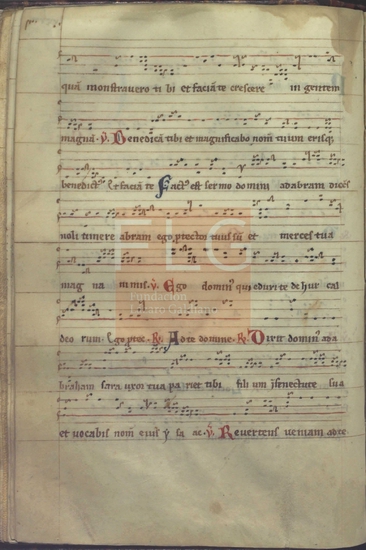 quā monstravero ti bi et faciā te crescere in gentem
magnā. ꝟ. Benedicā tibi et magnificabo nom̄ tuum erisq;
benedict⁹. Et faciā te Fact⁹ est sermo domini ad abram dicēs
noli timere abram ego ptector tuus sū et merces tua
mag na nimis. ꝟ. Ego domin⁹ qui eduxi te de hur cal
deo rum. Ego ptec. ℟. Ad te domine. ℟. Dixit domin⁹ ad a
braham sara uxor tua pariet tibi fili um in senectute sua
et vocabis nom̄ eius ysa ac. ꝟ. Revertens veniam ad te
Fundación
Lázaro Galdiano